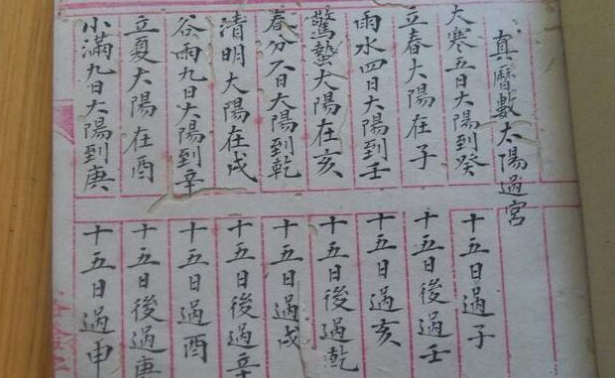 真曆數太陽過宮
大寒五日大陽到癸 十五日過子
立春大陽在子 十五日後過壬
雨水四日大陽到壬 十五日過亥
驚蟄大陽在亥 十五日後過乾
春分六日大陽到乾 十五日過戌
清明大陽在戌 十五日後過辛
谷雨九日大陽到辛 十五日過酉
立夏大陽在酉 十五日後過庚
小滿九日大陽到庚 十五日過申